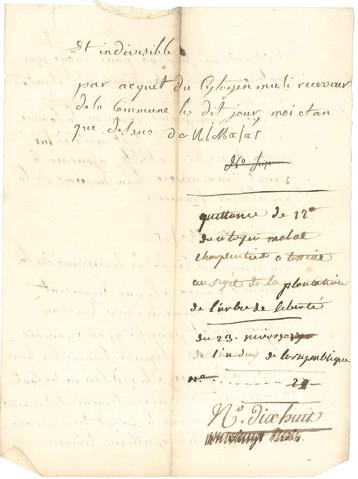 Et indivisible
par acquet du Citoyen muli receveur
de la Commune les dit jour, moi et an
que desus
quittance de 12#
du citoyen malae
charpentier a
au sujet de la plantation
de l'arbre de liberte
du 23.
de l'an deux de la republique
n°. 20
N°. dixhuit